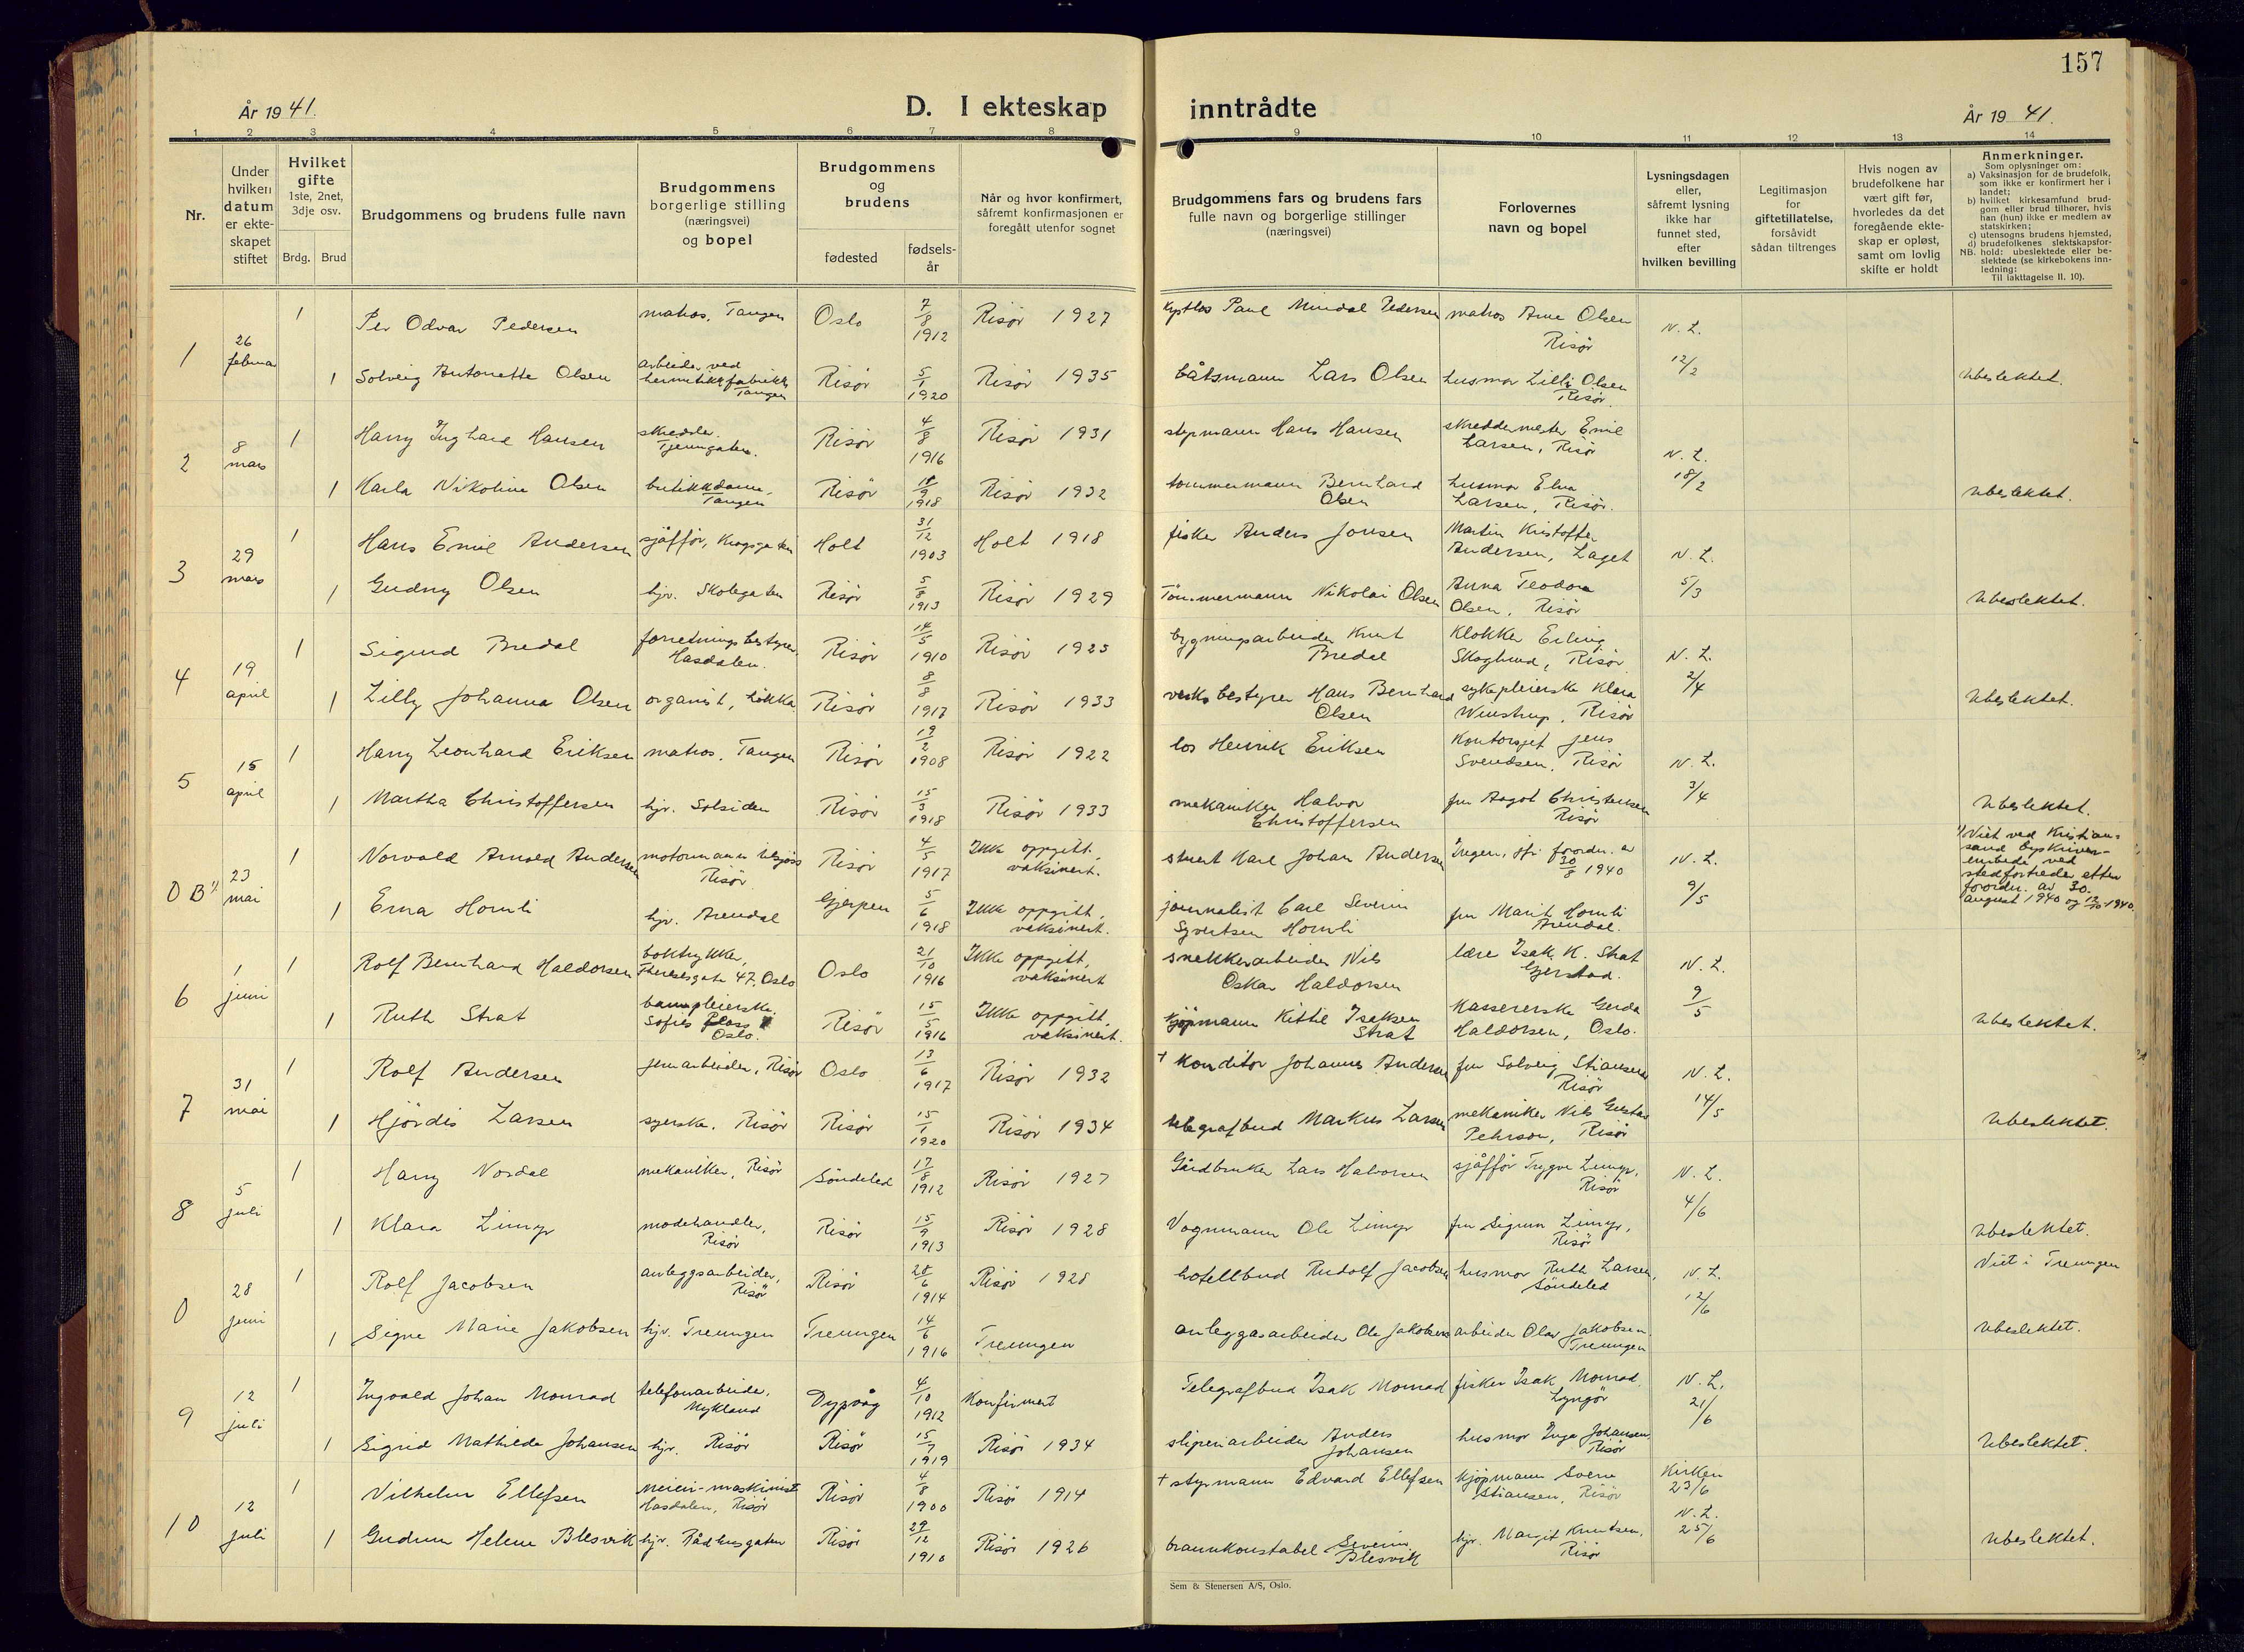 157
År 1941.
D. I ekteskap inntrådte
År 1941.
1 2 3 4 5 6 7 8 9 10 11 12 13 14
Nr.
Under
hvilken
datum
er ekte-
skapet
stiftet
Hvilket
gifte
1ste, 2net,
3dje osv.
Brdg. Brud
Brudgommens og brudens fulle navn
Brudgommens
borgerlige stilling
(næringsvei)
og bopel
Brudgommens
og
brudens
fødested
fødsels-
år
Når og hvor konfirmert,
såfremt konfirmasjonen er
foregått utenfor sognet
Brudgommens fars og brudens fars
fulle navn og borgerlige stillinger
(næringsvei)
Forlovernes
navn og bopel
Lysningsdagen
eller,
såfremt lysning
ikke har
funnet sted,
efter
hvilken bevilling
Legitimasjon
for
giftetillatelse,
forsåvidt
sådan tiltrenges
Hvis nogen av
brudefolkene har
vært gift før,
hvorledes da det
foregående ekte-
skap er opløst,
samt om lovlig
skifte er holdt
Anmerkninger.
Som oplysninger om:
a) Vaksinasjon for de brudefolk,
som ikke er konfirmert her i
landet;
b) hvilket kirkesamfund brud-
gom eller brud tilhører, hvis
han (hun) ikke er medlem av
statskirken;
c) utensogns brudens hjemsted,
d) brudefolkenes slektskapsfor-
NB. hold: ubeslektede eller be-
slektede (se kirkebokens inn-
ledning:
Til iakttagelse II. 10).
1 26 februar
1 Per Odvar Pedersen matros, Tangen Oslo 7/8 1912 Risør 1927 Kystlos Paul Mindal Pedersen matros Arne Olsen Risør N. L. 12/2
1 Solveig Antonette Olsen arbeider ved hermetikkfabrikk Tangen Risør 5/1 1920 Risør 1935 båtsmann Lars Olsen husmor Lilli Olsen Risør. Ubeslektet.
2 8 mars
1 Harry Inghard Hansen skredder, Tjenngaten. Risør 4/8 1916 Risør 1931 styrmann Hans Hansen skreddermester Emil Larsen, Risør N. L. 18/2
1 Karla Nikoline Olsen butikkdame, Tangen Risør 9 1918 Risør 1932 tømmermann Bernhard Olsen husmor Elna Larsen, Risør. Ubeslektet.
3 29 mars
1 Hans Emil Andersen sjåffør, Kragsgaten Holt 31/12 1903 Holt 1918 fisker Anders Jonsen Martin Kristoffer Andersen, Laget N. L. 5/3
1 Gudny Olsen hjv. Skolegaten Risør 5/8 1913 Risør 1929 Tømmermann Nikolai Olsen Anna Teodora Olsen, Risør Ubeslektet.
4 19 april
1 Sigurd Bredal forretningsbestyrer Hasdalen. Risør 14/5 1910 Risør 1925 bygningsarbeider Knut Bredal Klokker Erling Skoglund, Risør N. L. 2/4
1 Lilly Johanna Olsen organist, Løkka Risør 8/8 1917 Risør 1933 verksbestyrer Hans Bernhard Olsen sykepleierske Klara Winstrup, Risør Ubeslektet.
5 15 april
1 Harry Leonhard Eriksen matros, Tangen Risør 19/2 1908 Risør 1922 los Henrik Eriksen Kontorsjef Jens Svendsen, Risør N. L. 3/4
1 Martha Christoffersen hjv. Solsiden Risør 15/3 1918 Risør 1933 mekaniker Halvor Christoffersen fru Aagot Christensen Risør Ubeslektet.
0 B 1) 23 mai
1 Norvald Arnold Andersen motormann tilsjøss Risør Risør 4/5 1917 Ikke oppgitt, vaksinert. stuert Karl Johan Andersen Ingen, jfr. forordn. av 30/8 1940 N. L. 9/5 1) Viet ved Kristian-
sand byskriver-
embede ved
stedfortreder etter
forordn. av 30.
august 1940 og 12/10 1940.
1 Erna Hornli hjv. Arendal Gjerpen 5/6 1918 Ikke oppgitt, vaksinert. journalist Carl Severin Syvertsen Hornli fru Marit Hornli Arendal.
6 1 juni
1 Rolf Bernhard Haldorsen boktrykker, Theresesgate 47, Oslo Oslo 21/10 1916 Ikke oppgitt, vaksinert snekkerarbeider Nils Oskar Haldorsen lærer Isak K. Strat Gjerstad. N. L. 9/5
1 Ruth Strat barnepleierske, Sofies Plass Oslo. Risør 15/5 1916 Ikke oppgitt, vaksinert. kjøpmann Kittil Isaksen Strat Kassererske Gerda Haldorsen, Oslo. Ubeslektet.
7 31 mai
1 Rolf Andersen jernarbeider, Risør Oslo 13/6 1917 Risør 1932 + Konditor Johannes Andersen fru Solveig Stiansen Risør N. L. 14/5
1 Hjördis Larsen syerske, Risør Risør 15/1 1920 Risør 1934 telegrafbud Markus Larsen mekaniker Nils Gustav Pehrson, Risør Ubeslektet.
8 5 juli
1 Harry Nordal mekaniker, Risør Søndeled 17/8 1912 Risør 1927 Gårdbruker Lars Halvorsen sjåffør Trygve Limyr, Risør N. L. 4/6
1 Klara Limyr motehandler, Risør Risør 15/9 1913 Risør 1928 Vognmann Ole Limyr fru Sigrun Limyr, Risør Ubeslektet.
0 28 juni
1 Rolf Jacobsen anleggsarbeider, Risør Risør 28/6 1914 Risør 1928 hotellbud Rudolf Jacobsen husmor Ruth Larsen, Søndeled N. L. 12/6 Viet i Treungen
1 Signe Marie Jakobsen hjv. Treungen Treungen 14/6 1916 Treungen anleggsarbeider Ole Jakobsen arbeider Olav Jakobsen. Treungen Ubeslektet.
9 12 juli
1 Ingvald Johan Monrad telefonarbeider, Mykland Dypvåg 4/10 1912 Konfirmert Telegrafbud Isak Monrad fisker Isak Monrad. Lyngør N. L. 21/6
1 Sigrid Mathilde Johansen hjv. Risør Risør 15/7 1919 Risør 1934 sliperiarbeider Anders Johansen husmor Inga Johansen, Risør Ubeslektet.
10 12 juli
1 Vilhelm Ellefsen Meieri-maskinist Hasdalen, Risør Risør 4/8 1900 Risør 1914 + styrmann Edvard Ellefsen kjøpmann Sverre Stiansen, Risør Kirken 23/6
N. L. 25/6
1 Gudrun Helene Blesvik hjv. Rådhusgaten Risør 29/12 1910 Risør 1926 brannkonstabel Severin Blesvik hjv. Margit Knutsen, Risør Ubeslektet.
Sem & Stenersen A/S, Oslo.